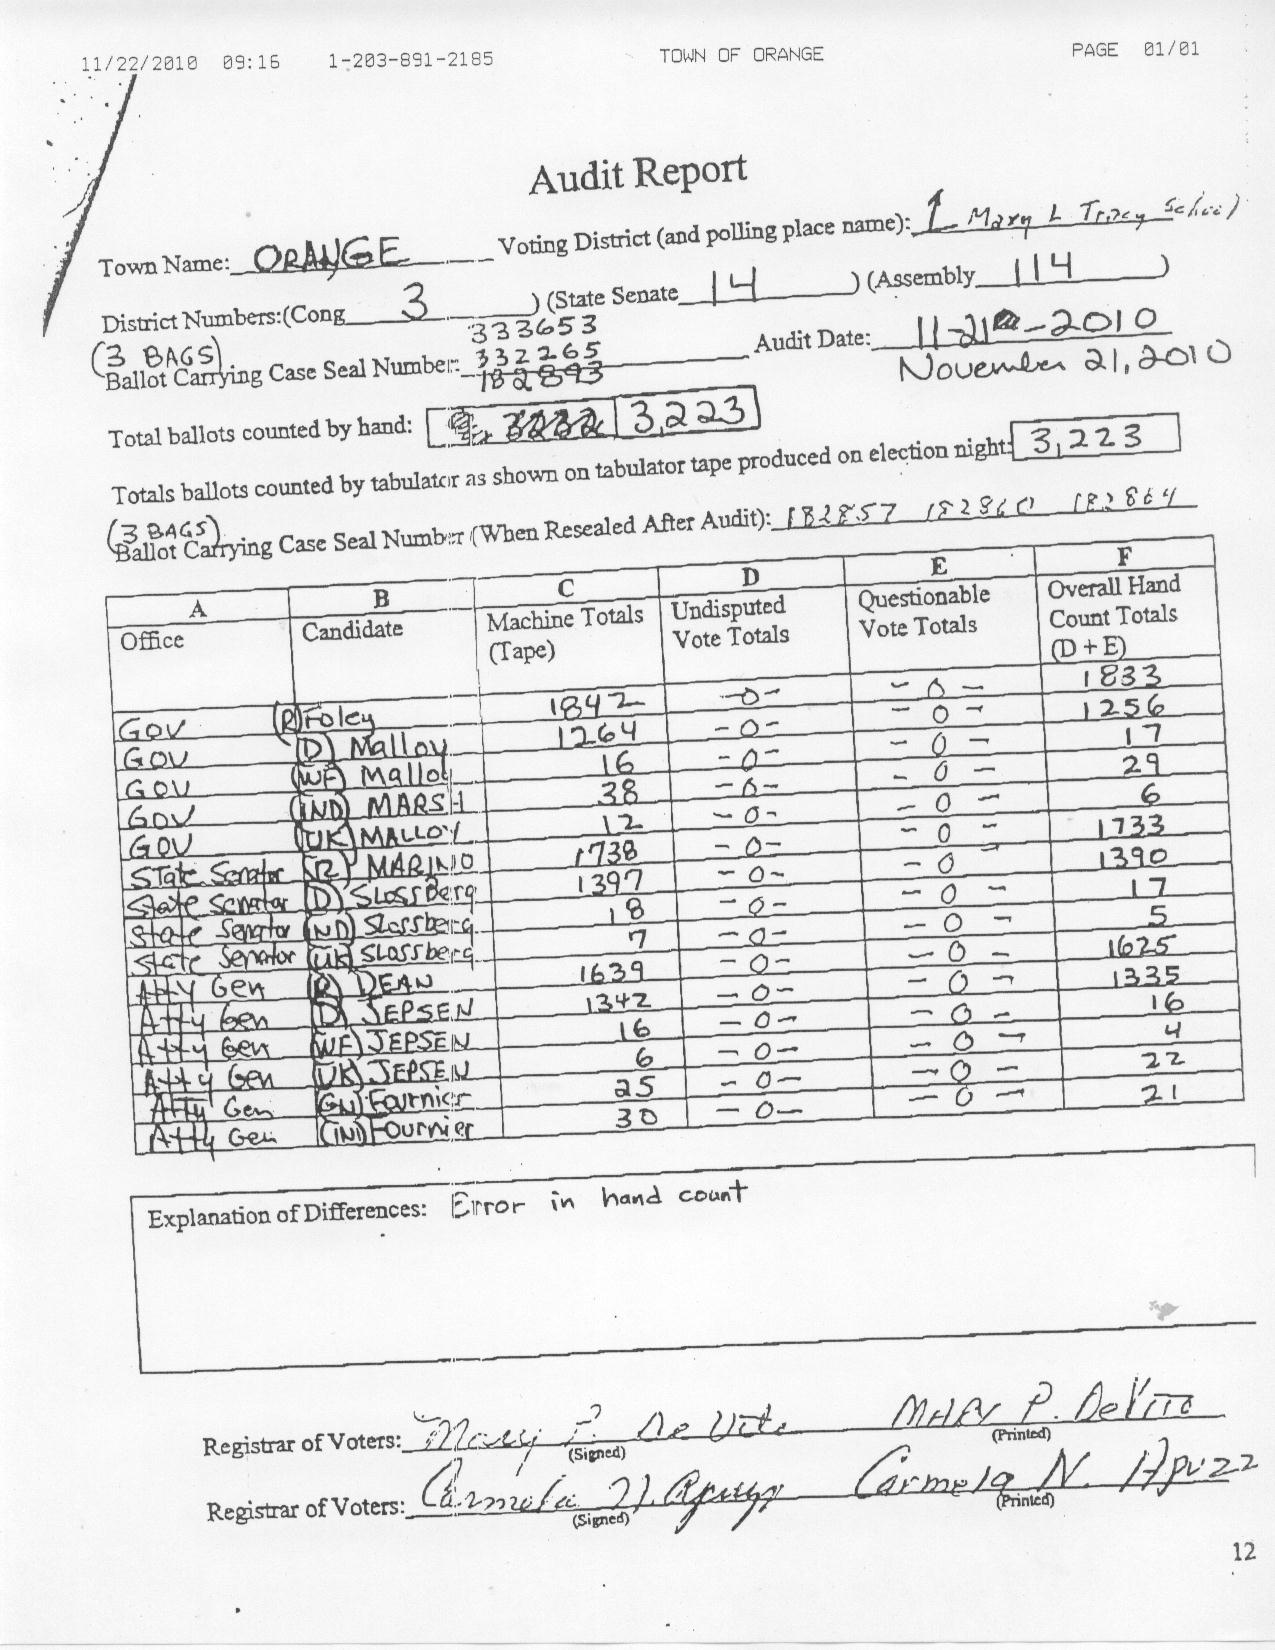 11/22/2010 09:16 1-203-891-2185 TOWN OF ORANGE PAGE 01/01
Audit Report
Town Name: ORANGE Voting District (and polling place name): 1 Mary L Tracy School
District Numbers:(Cong 3 ) (State Senate 14 ) (Assembly 114 )
333653
(3 BAGS) 332265 Audit Date: 11-21-2010
Ballot Carrying Case Seal Number: 182893 November 21, 2010
Total ballots counted by hand: 3232 3,223
Totals ballots counted by tabulator as shown on tabulator tape produced on election night: 3,223
(3 BAGS)
Ballot Carrying Case Seal Number (When Resealed After Audit): 182857 182860 182864
A B C D E F
Office Candidate Machine Totals (Tape) Undisputed Vote Totals Questionable Vote Totals Overall Hand Count Totals (D + E)
GOV (R) Foley 1842 -0- -0- 1833
GOV (D) Malloy 1264 -0- -0- 1256
GOV (WF) Malloy 16 -0- -0- 17
GOV (IND) MARSH 38 -0- -0- 29
GOV (UK) MALLOY 12 -0- -0- 6
State Senator (R) MARINO 1738 -0- -0- 1733
State Senator (D) Slossberg 1397 -0- -0- 1390
State Senator (IND) Slossberg 18 -0- -0- 17
State Senator (UK) Slossberg 7 -0- -0- 5
Atty Gen (R) DEAN 1639 -0- -0- 1625
Atty Gen (D) JEPSEN 1342 -0- -0- 1335
Atty Gen (WF) JEPSEN 16 -0- -0- 16
Atty Gen (UK) JEPSEN 6 -0- -0- 4
Atty Gen (GN) Fournier 25 -0- -0- 22
Atty Gen (IN) Fournier 30 -0- -0- 21
Explanation of Differences: Error in hand count
Registrar of Voters: Mary P. DeVito MARY P. DeVITO
(Signed) (Printed)
Registrar of Voters: Carmela N. Apuzz Carmela N. Apuzz
(Signed) (Printed)
12